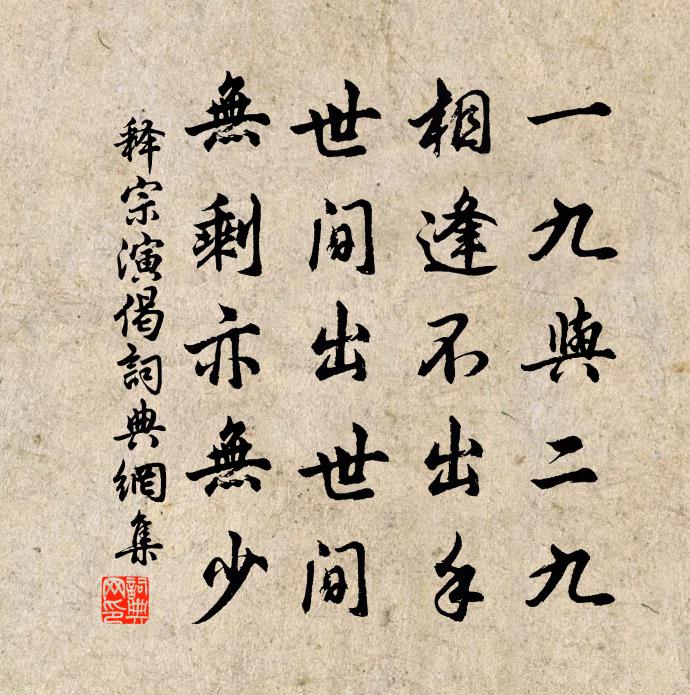 一九與二九
相逢不出手
世間出世間
無剩亦無少
释宗演偈詞典網集
詞典網印